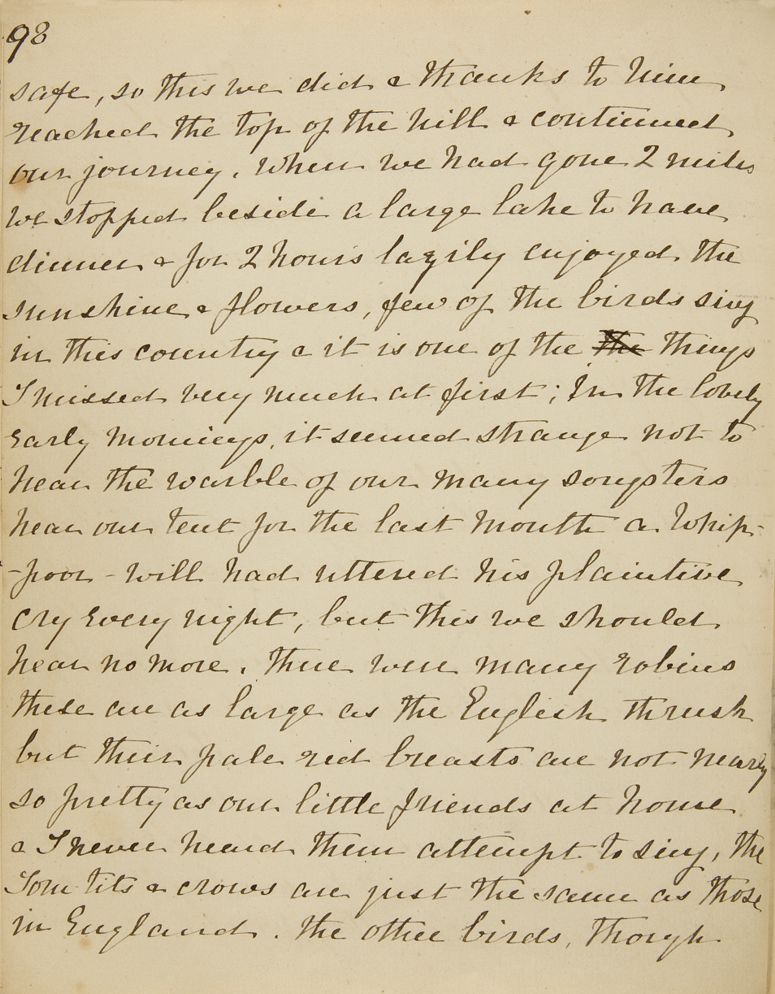 98
safe, so this we did & thanks to him
reached the top of the hill & continued
our journey. When we had gone 2 miles
we stopped beside a large lake to have
dinner & for 2 hours lazily enjoyed the
sunshine & flowers, few of the birds sing
in this country & it is one of the the things
I missed very much at first; In the lovely
early mornings, it seemed strange not to
hear the warble of our many songsters
near our tent for the last month a Whip-
-poor-will had uttered his plaintive
cry every night, but this we should
hear no more. There were many robins
these are as large as the English thrush
but their pale red breasts are not nearly
so pretty as our little friends at home
& I never heard them attempt to sing, the
Tom tits & crows are just the same as those
in England. The other birds, though